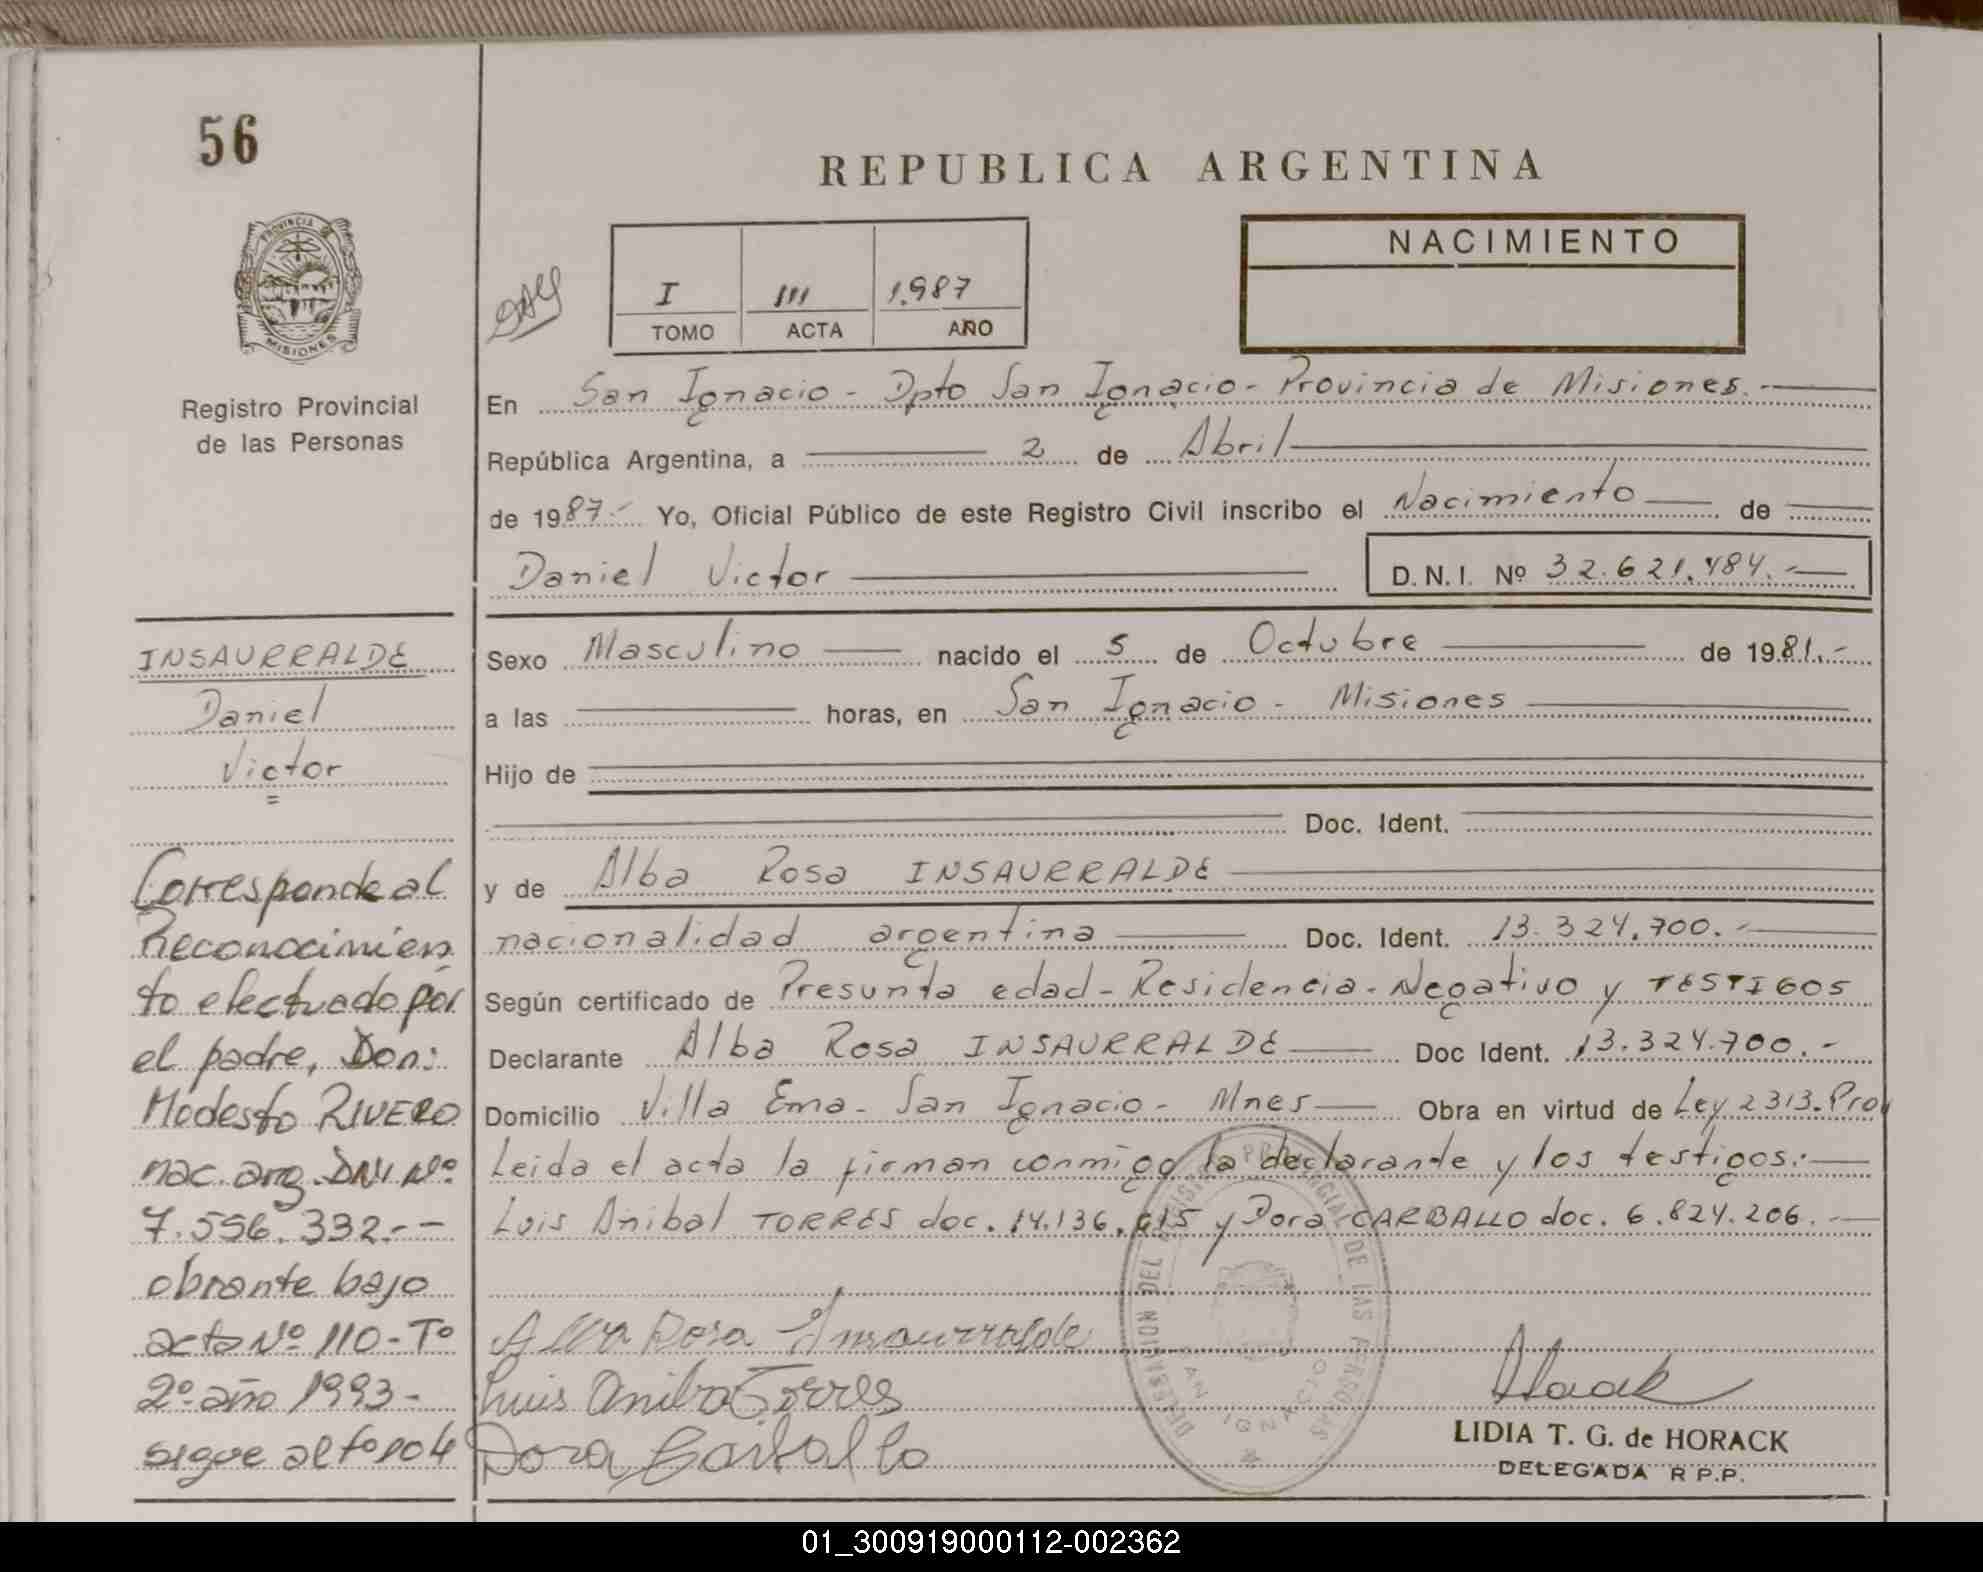 56
REPUBLICA ARGENTINA
PROVINCIA DE
MISIONES
Registro Provincial
de las Personas
NACIMIENTO
I 111 1.987
TOMO ACTA AÑO
En San Ignacio - Dpto San Ignacio - Provincia de Misiones.-
República Argentina, a 2 de Abril
de 1987.- Yo, Oficial Público de este Registro Civil inscribo el Nacimiento de
Daniel Victor D.N.I. Nº 32.621.484.-
INSAURRALDE
Daniel
Victor
Sexo Masculino nacido el 5 de Octubre de 1981.-
a las horas, en San Ignacio - Misiones
Hijo de
Doc. Ident.
y de Alba Rosa INSAURRALDE
nacionalidad argentina Doc. Ident. 13.324.700.-
Según certificado de Presunta edad - Residencia - Negativo y TESTIGOS
Declarante Alba Rosa INSAURRALDE Doc Ident. 13.324.700.-
Domicilio Villa Ema - San Ignacio - Mnes Obra en virtud de Ley 2313-Prov
Leida el acta la firman conmigo la declarante y los testigos:
Luis Anibal TORRES doc. 14.136.615 y Dora CARBALLO doc. 6.824.206.-
Corresponde al
Reconocimien
to efectuado por
el padre, Don:
Modesto RIVERO
nac. arg. DNI Nº
7.556.332.--
obrante bajo
acta Nº 110 - Tº
2º año 1993 -
sigue al fº 104
Alba Rosa Insaurralde
Luis Anibal Torres
Dora Carballo
DELEGACION DEL REGISTRO PROVINCIAL DE LAS PERSONAS
SAN IGNACIO
Horack
LIDIA T. G. de HORACK
DELEGADA R P.P.
01_300919000112-002362